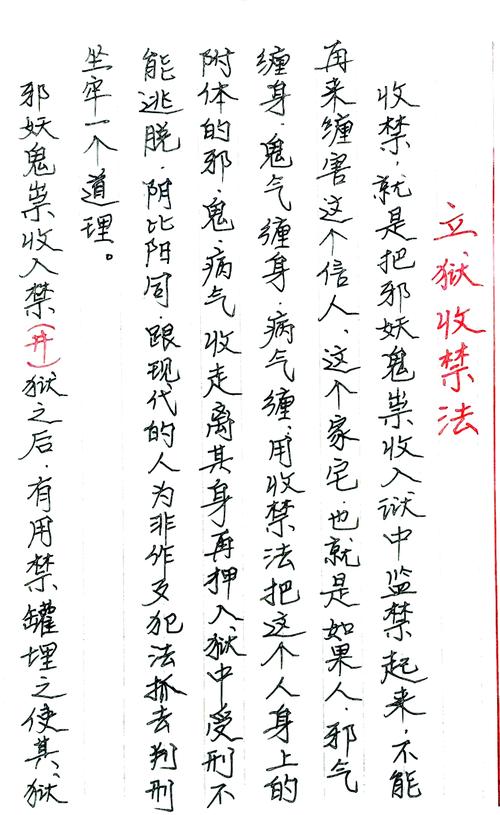 立狱收禁法
收禁，就是把邪妖鬼祟收入狱中监禁起来，不能
再来缠害这个信人、这个家宅，也就是如果人，邪气
缠身，鬼气缠身，病气缠，用收禁法把这个人身上的
附体的邪，鬼，病气收走离其身再押入狱中受刑不
能逃脱，阴比阳同，跟现代的人为非作歹犯法抓去判刑
坐牢一个道理。
邪妖鬼祟收入禁(井)狱之后，有用禁罐埋之使其狱